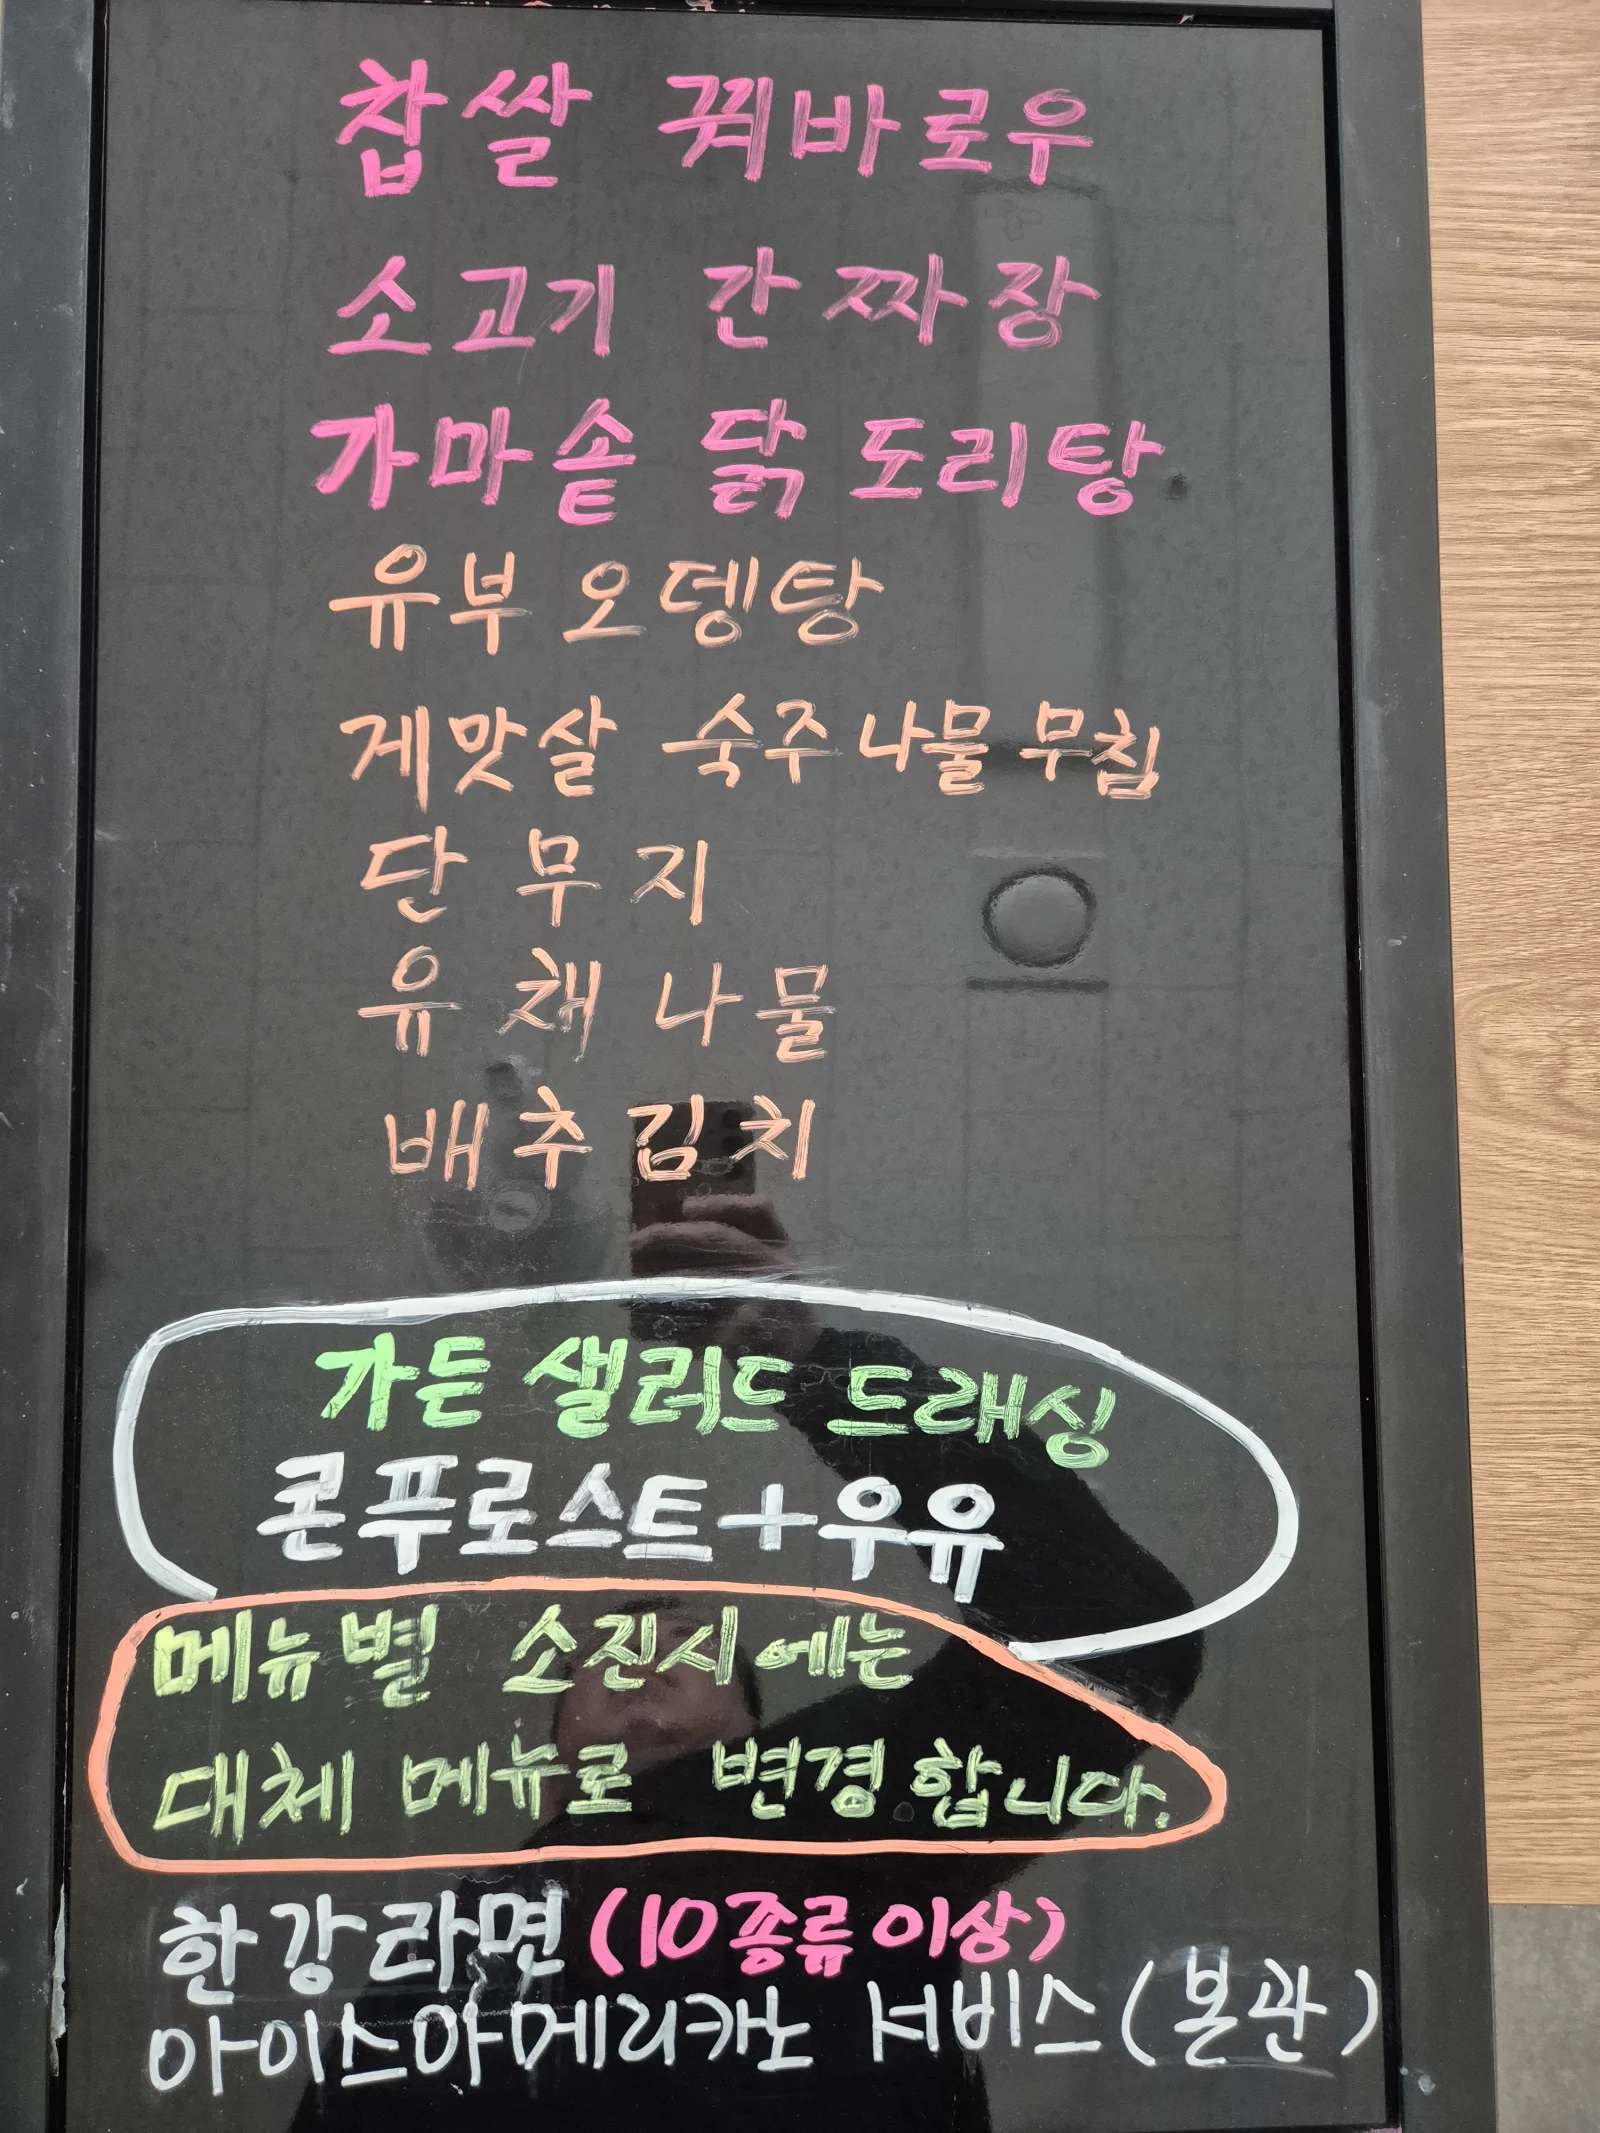 찹쌀 꿔바로우
소고기 간짜장
가마솥 닭도리탕
유부오뎅탕
게맛살 숙주나물무침
단무지
유채나물
배추김치
가든 샐러드 드래싱
콘푸로스트+우유
메뉴별 소진시에는
대체 메뉴로 변경합니다.
한강라면(10종류이상)
아이스아메리카노 서비스(본관)